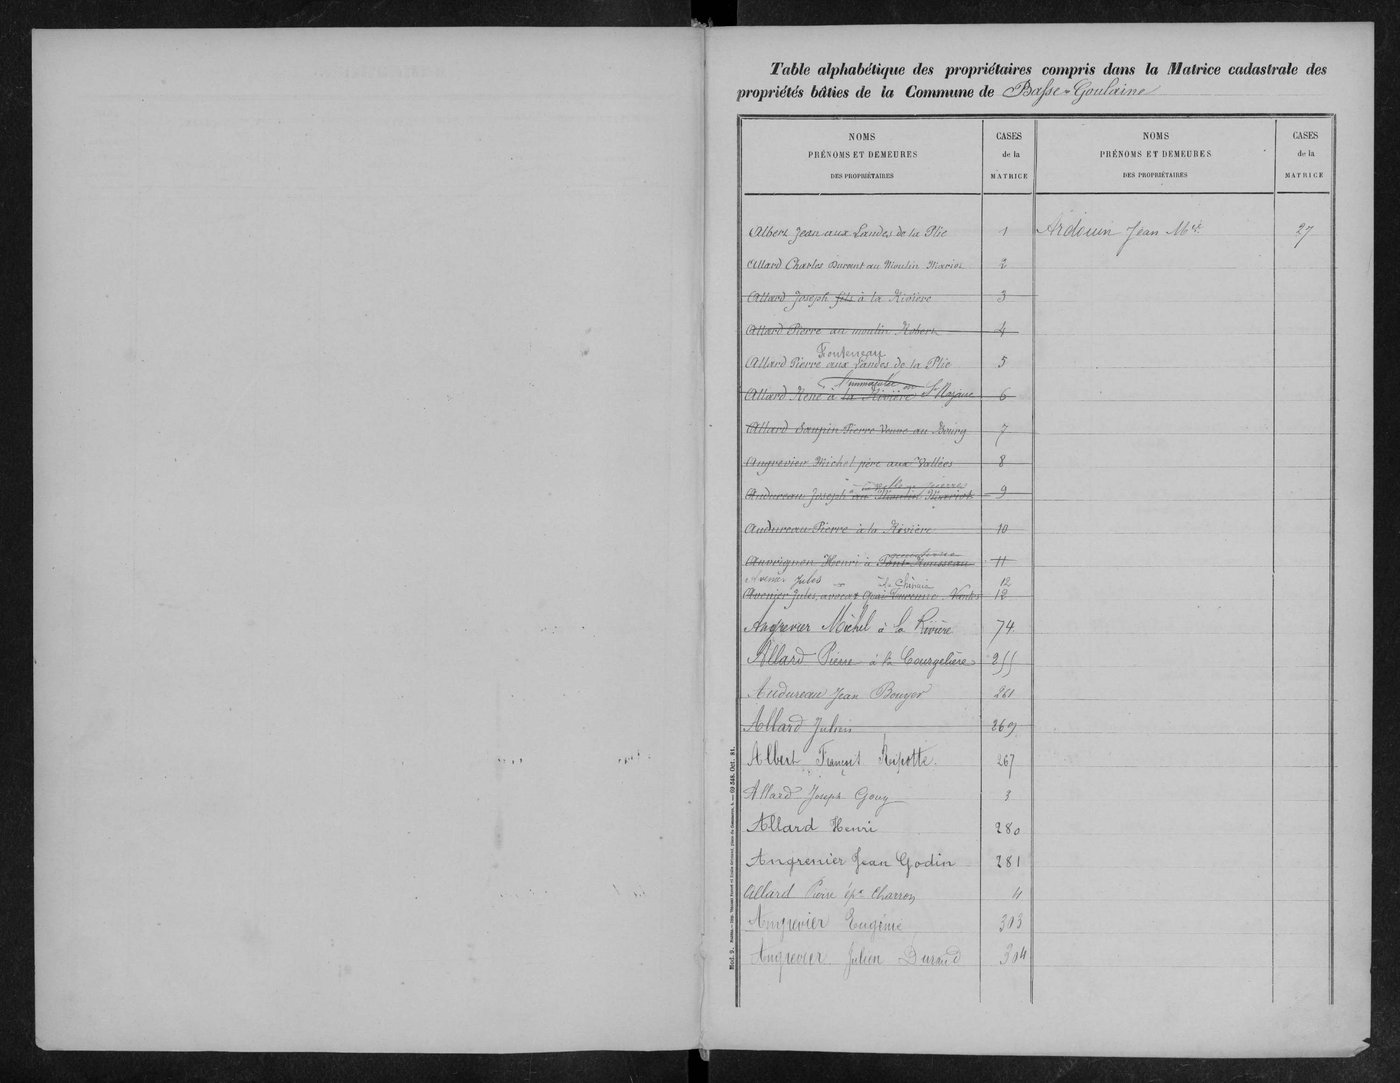 Table alphabétique des propriétaires compris dans la Matrice cadastrale des
propriétés bâties de la Commune de Basse-Goulaine
NOMS
PRÉNOMS ET DEMEURES
DES PROPRIÉTAIRES
CASES
de la
MATRICE
NOMS
PRÉNOMS ET DEMEURES
DES PROPRIÉTAIRES
CASES
de la
MATRICE
Albert Jean aux Landes de la Plée 1
Ardouin Jean Mel 27
Allard Charles Durant au Moulin Mariot 2
Allard Joseph fils à la Rivière 3
Allard Pierre au moulin Robert 4
Fonteneau
Allard Pierre aux Landes de la Plée 5
Allard René à la Rivière 6
Allard Saupin Pierre Veuve au Bourg 7
Angrevier Michel père aux Vallées 8
Audureau Joseph au Moulin Mariot 9
Audureau Pierre à la Rivière 10
Auvignon Henri à Pont-Rousseau 11
Avenier Jules 12
Avenier Jules, avocat Quai Nantes 12
Angrevier Michel à la Rivière 74
Allard Pierre à la Courgelière 255
Audureau Jean Bouyer 261
Allard Julien 269
Albert François Ripotte 267
Allard Joseph Gouy 3
Allard Henri 280
Angrenier Jean Godin 281
Allard Pierre épx Charron 4
Angrevier Eugénie 303
Angrevier Julien Durand 304